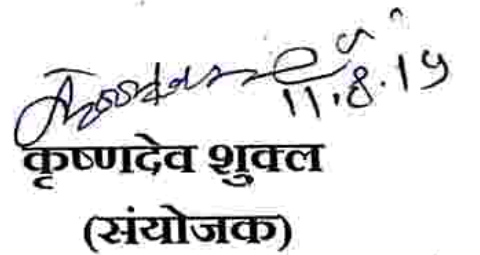 11.8.19
कृष्णदेव शुक्ल
(संयोजक)